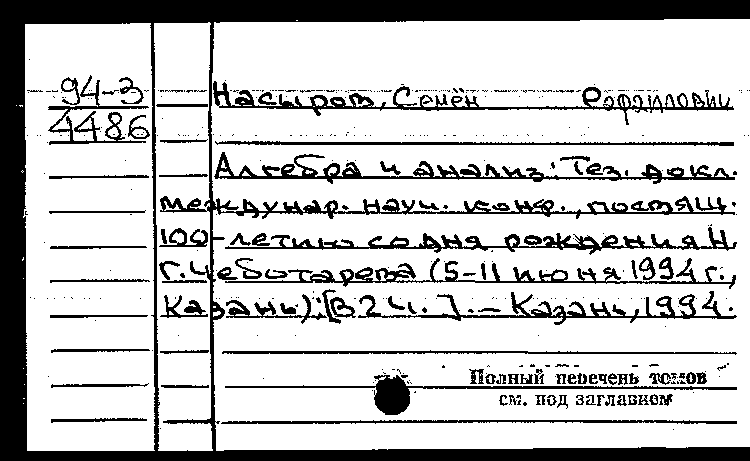 94-3
4486
Насыров, Семён Рафаилович
Алгебра и анализ: Тез. докл.
междунар. науч. конф., посвящ.
100-летию со дня рождения Н.
Г. Чеботарева (5-11 июня 1994 г.,
Казань): [В 2 ч.]. — Казань, 1994.
Полный перечень томов
см. под заглавием